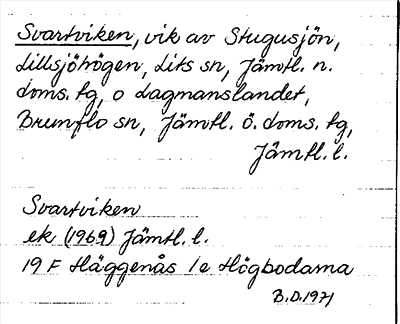 Svartviken, vik av Stugusjön,
Lillsjöhögen, Lits sn, Jämtl. n.
doms. tg, o Lagmanslandet,
Brunflo sn, Jämtl. ö. doms. tg,
Jämtl. l.
Svartviken
ek (1969) Jämtl. l.
19 F Häggenås 1e Högbodarna
B.D. 1971